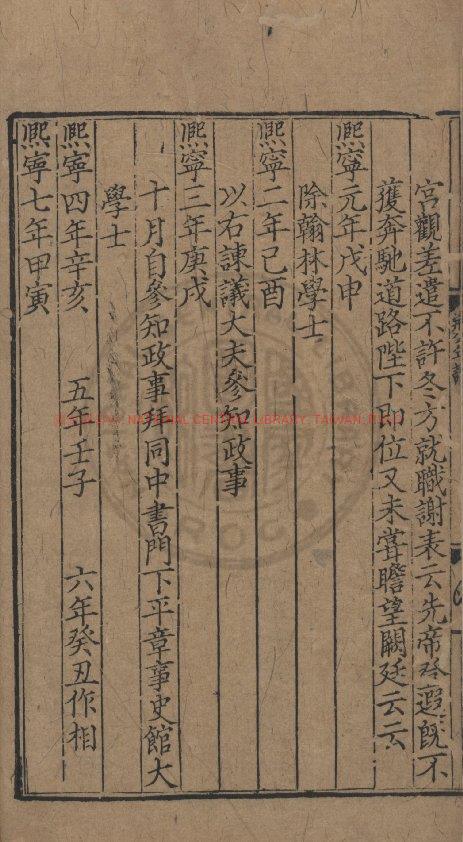 宮觀差遣不許冬方就職謝表云先帝登遐既不
獲奔馳道路陛下即位又未甞瞻望闕廷云云
熈寧元年戊申
除翰林學士
熈寧二年己酉
以右諫議大夫參知政事
熈寧三年庚戌
十月自參知政事拜同中書門下平章事史館大
學士
熈寧四年辛亥 五年壬子 六年癸丑作相
熈寧七年甲寅
NATIONAL CENTRAL LIBRARY, TAIWAN, R.O.C.